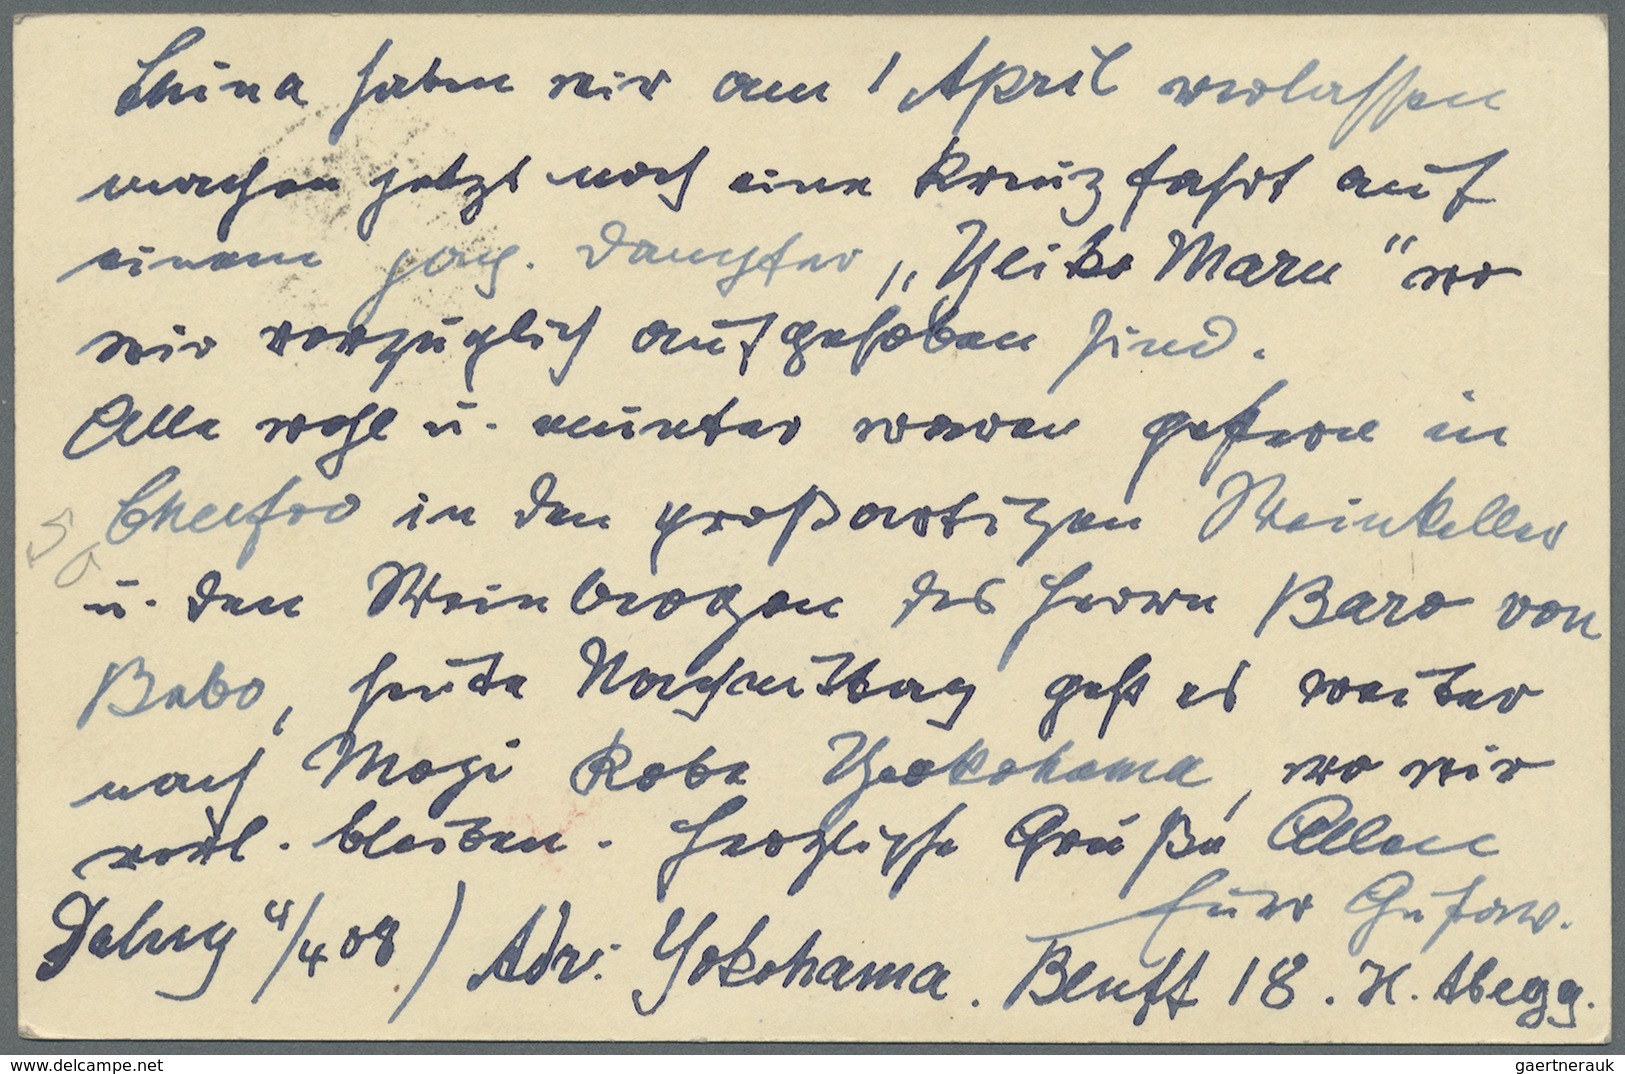 China haben wir am 1 April verlassen
machen jetzt noch eine Kreuzfahrt auf
einem jap. Dampfer „Yeiko Maru" wo
wir vorzüglich aufgehoben sind.
Alle wohl u. munter waren gestern in
Cheefoo in den großartigen Weinkeller
u. den Weinbergen des Herrn Baro von
Babo, heute Nachmittag geht es weiter
nach Mogi Kobe Yokohama, wo wir
vorl. bleiben. Herzliche Grüße Allen
Euer Gustav.
Dalny 4/4 08) Adr: Yokohama. Bluff 18. H. Abegg.
gaertnerauk
delcampe.net